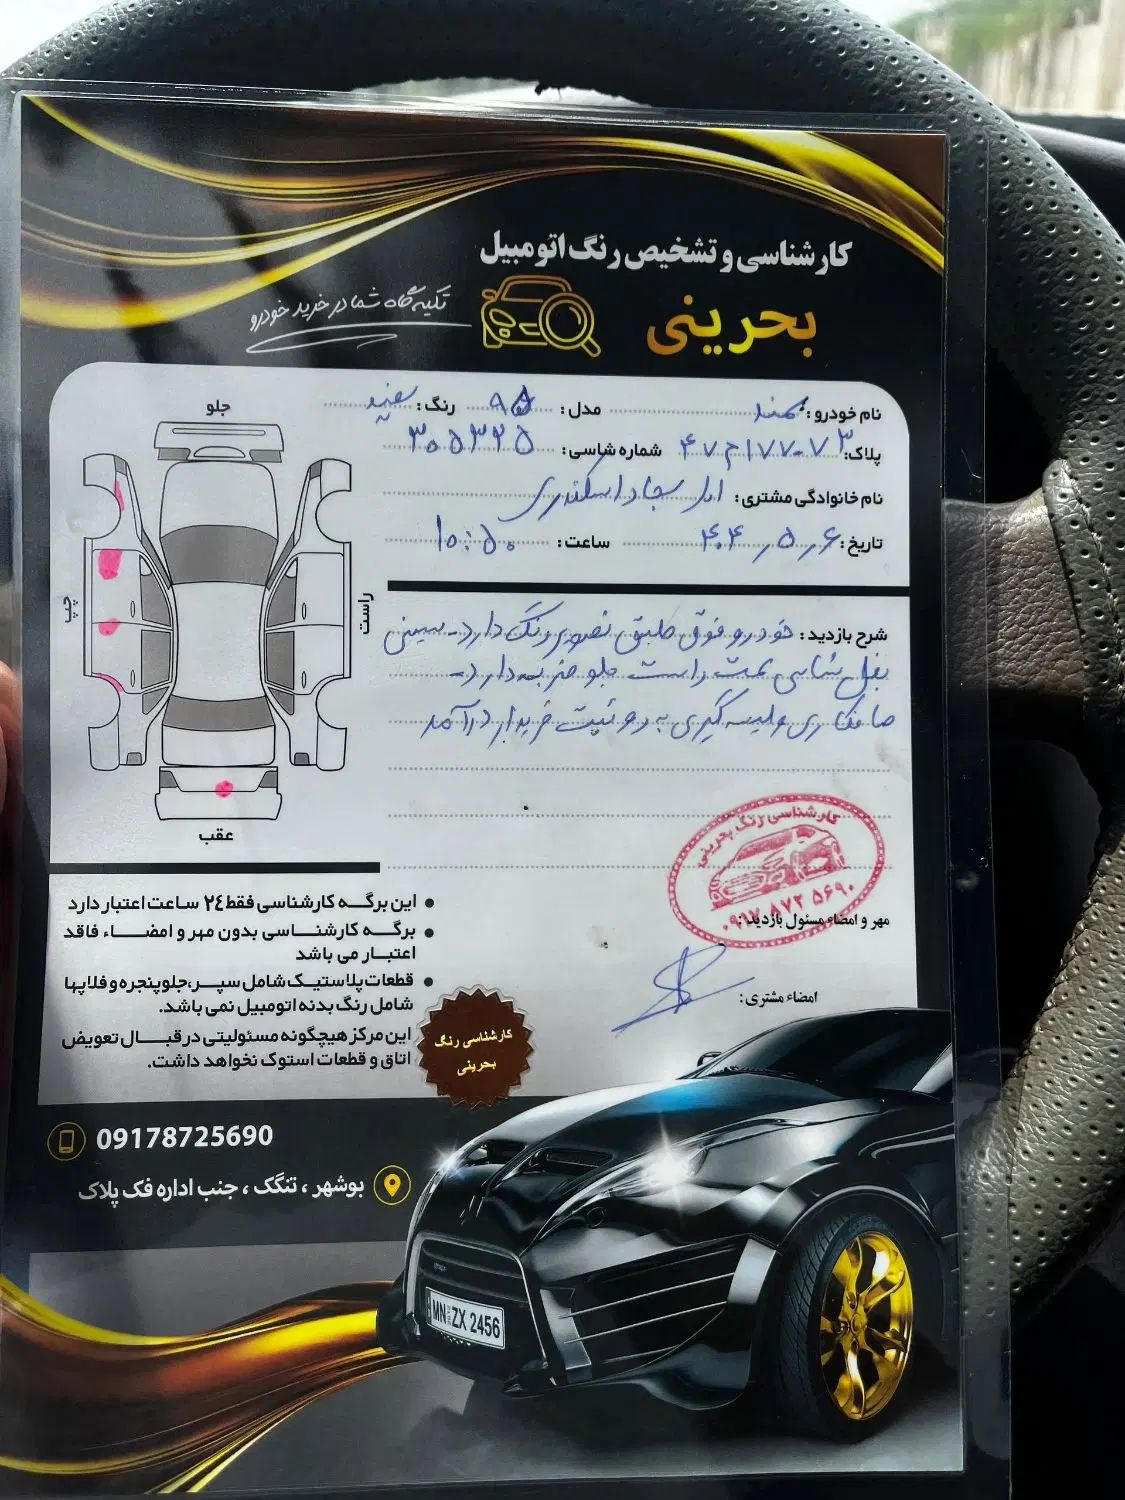 کارشناسی و تشخیص رنگ اتومبیل
بحرینی
تکیه گاه شما در خرید خودرو
نام خودرو: سمند مدل: ۹۵ رنگ: سفید
پلاک: ۴۷ ۱۷۷-۷۳ شماره شاسی: ۳۰۵۳۲۵
نام خانوادگی مشتری: سجاد اسکندری
تاریخ: ۴۰۴/۵/۶ ساعت: ۱۰:۵۰
جلو
چپ
راست
عقب
شرح بازدید: خودرو فوق طبق تصویر رنگ دارد - سینی
بغل شاسی سمت راست جلو ضربه دارد -
صافکاری و لیسه گیری به رویت خریدار درآمد
کارشناسی رنگ بحرینی
۰۹۱۷ ۸۷۲ ۵۶۹۰
مهر و امضاء مسئول بازدید:
امضاء مشتری:
این برگه کارشناسی فقط ٢٤ ساعت اعتبار دارد
برگه کارشناسی بدون مهر و امضاء فاقد
اعتبار می باشد
قطعات پلاستیک شامل سپر،جلوپنجره و فلاپها
شامل رنگ بدنه اتومبیل نمی باشد.
این مرکز هیچگونه مسئولیتی در قبال تعویض
اتاق و قطعات استوک نخواهد داشت.
کارشناسی رنگ
بحرینی
09178725690
بوشهر ، تنگک ، جنب اداره فک پلاک
MN ZX 2456